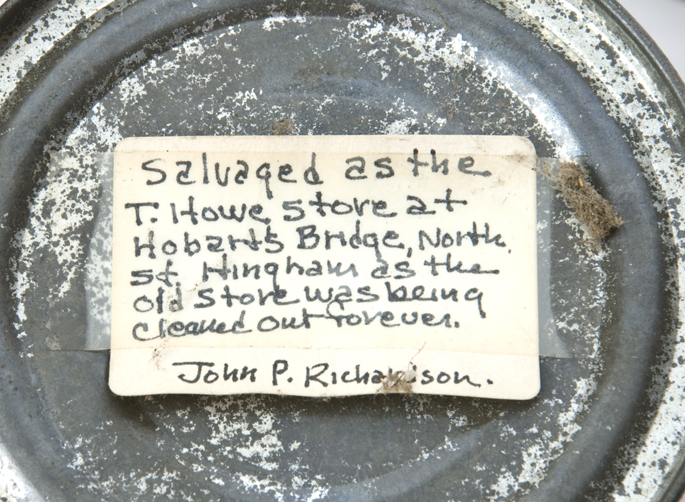 Salvaged as the
T. Howe store at
Hobart's Bridge, North
St. Hingham as the
old store was being
cleaned out forever.
John P. Richardson.